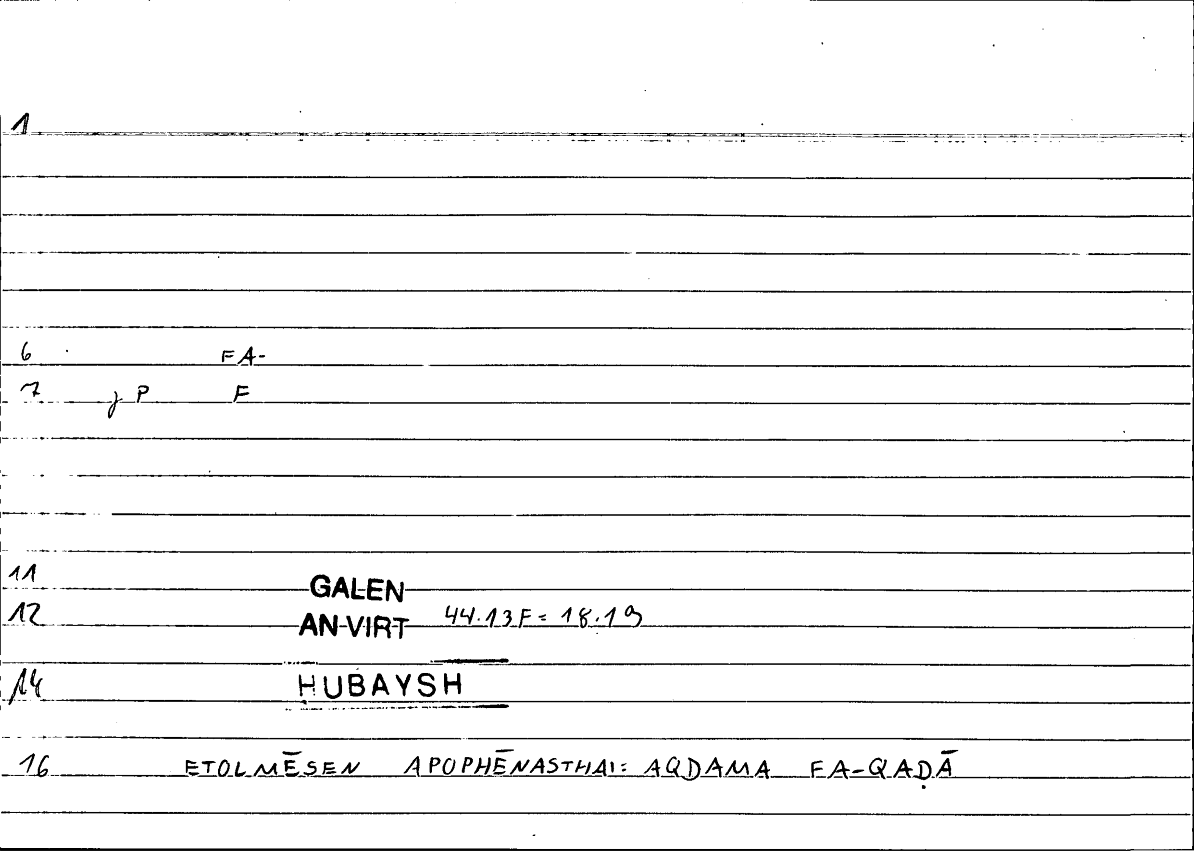 1
6 FA-
7 γ P F
11 GALEN
12 AN VIRT 44.13F = 18.19
14 HUBAYSH
16 ETOLMĒSEN APOPHĒNASTHAI: AQDAMA FA-QAḌĀ